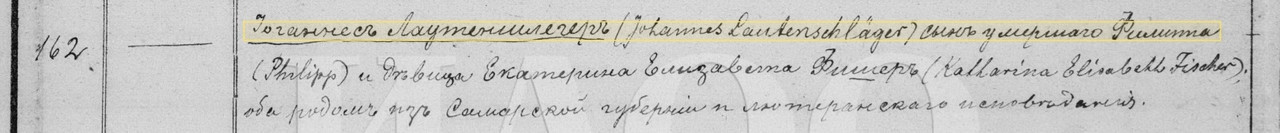 162. Іоганнесъ Лаутеншлегеръ (Johannes Lautenschläger) сынъ умершаго Филиппа
(Philipp) и дѣвица Екатерина Елизавета Фишеръ (Katharina Elisabeth Fischer),
оба родомъ изъ Самарской губерніи и лютеранскаго исповѣданія.